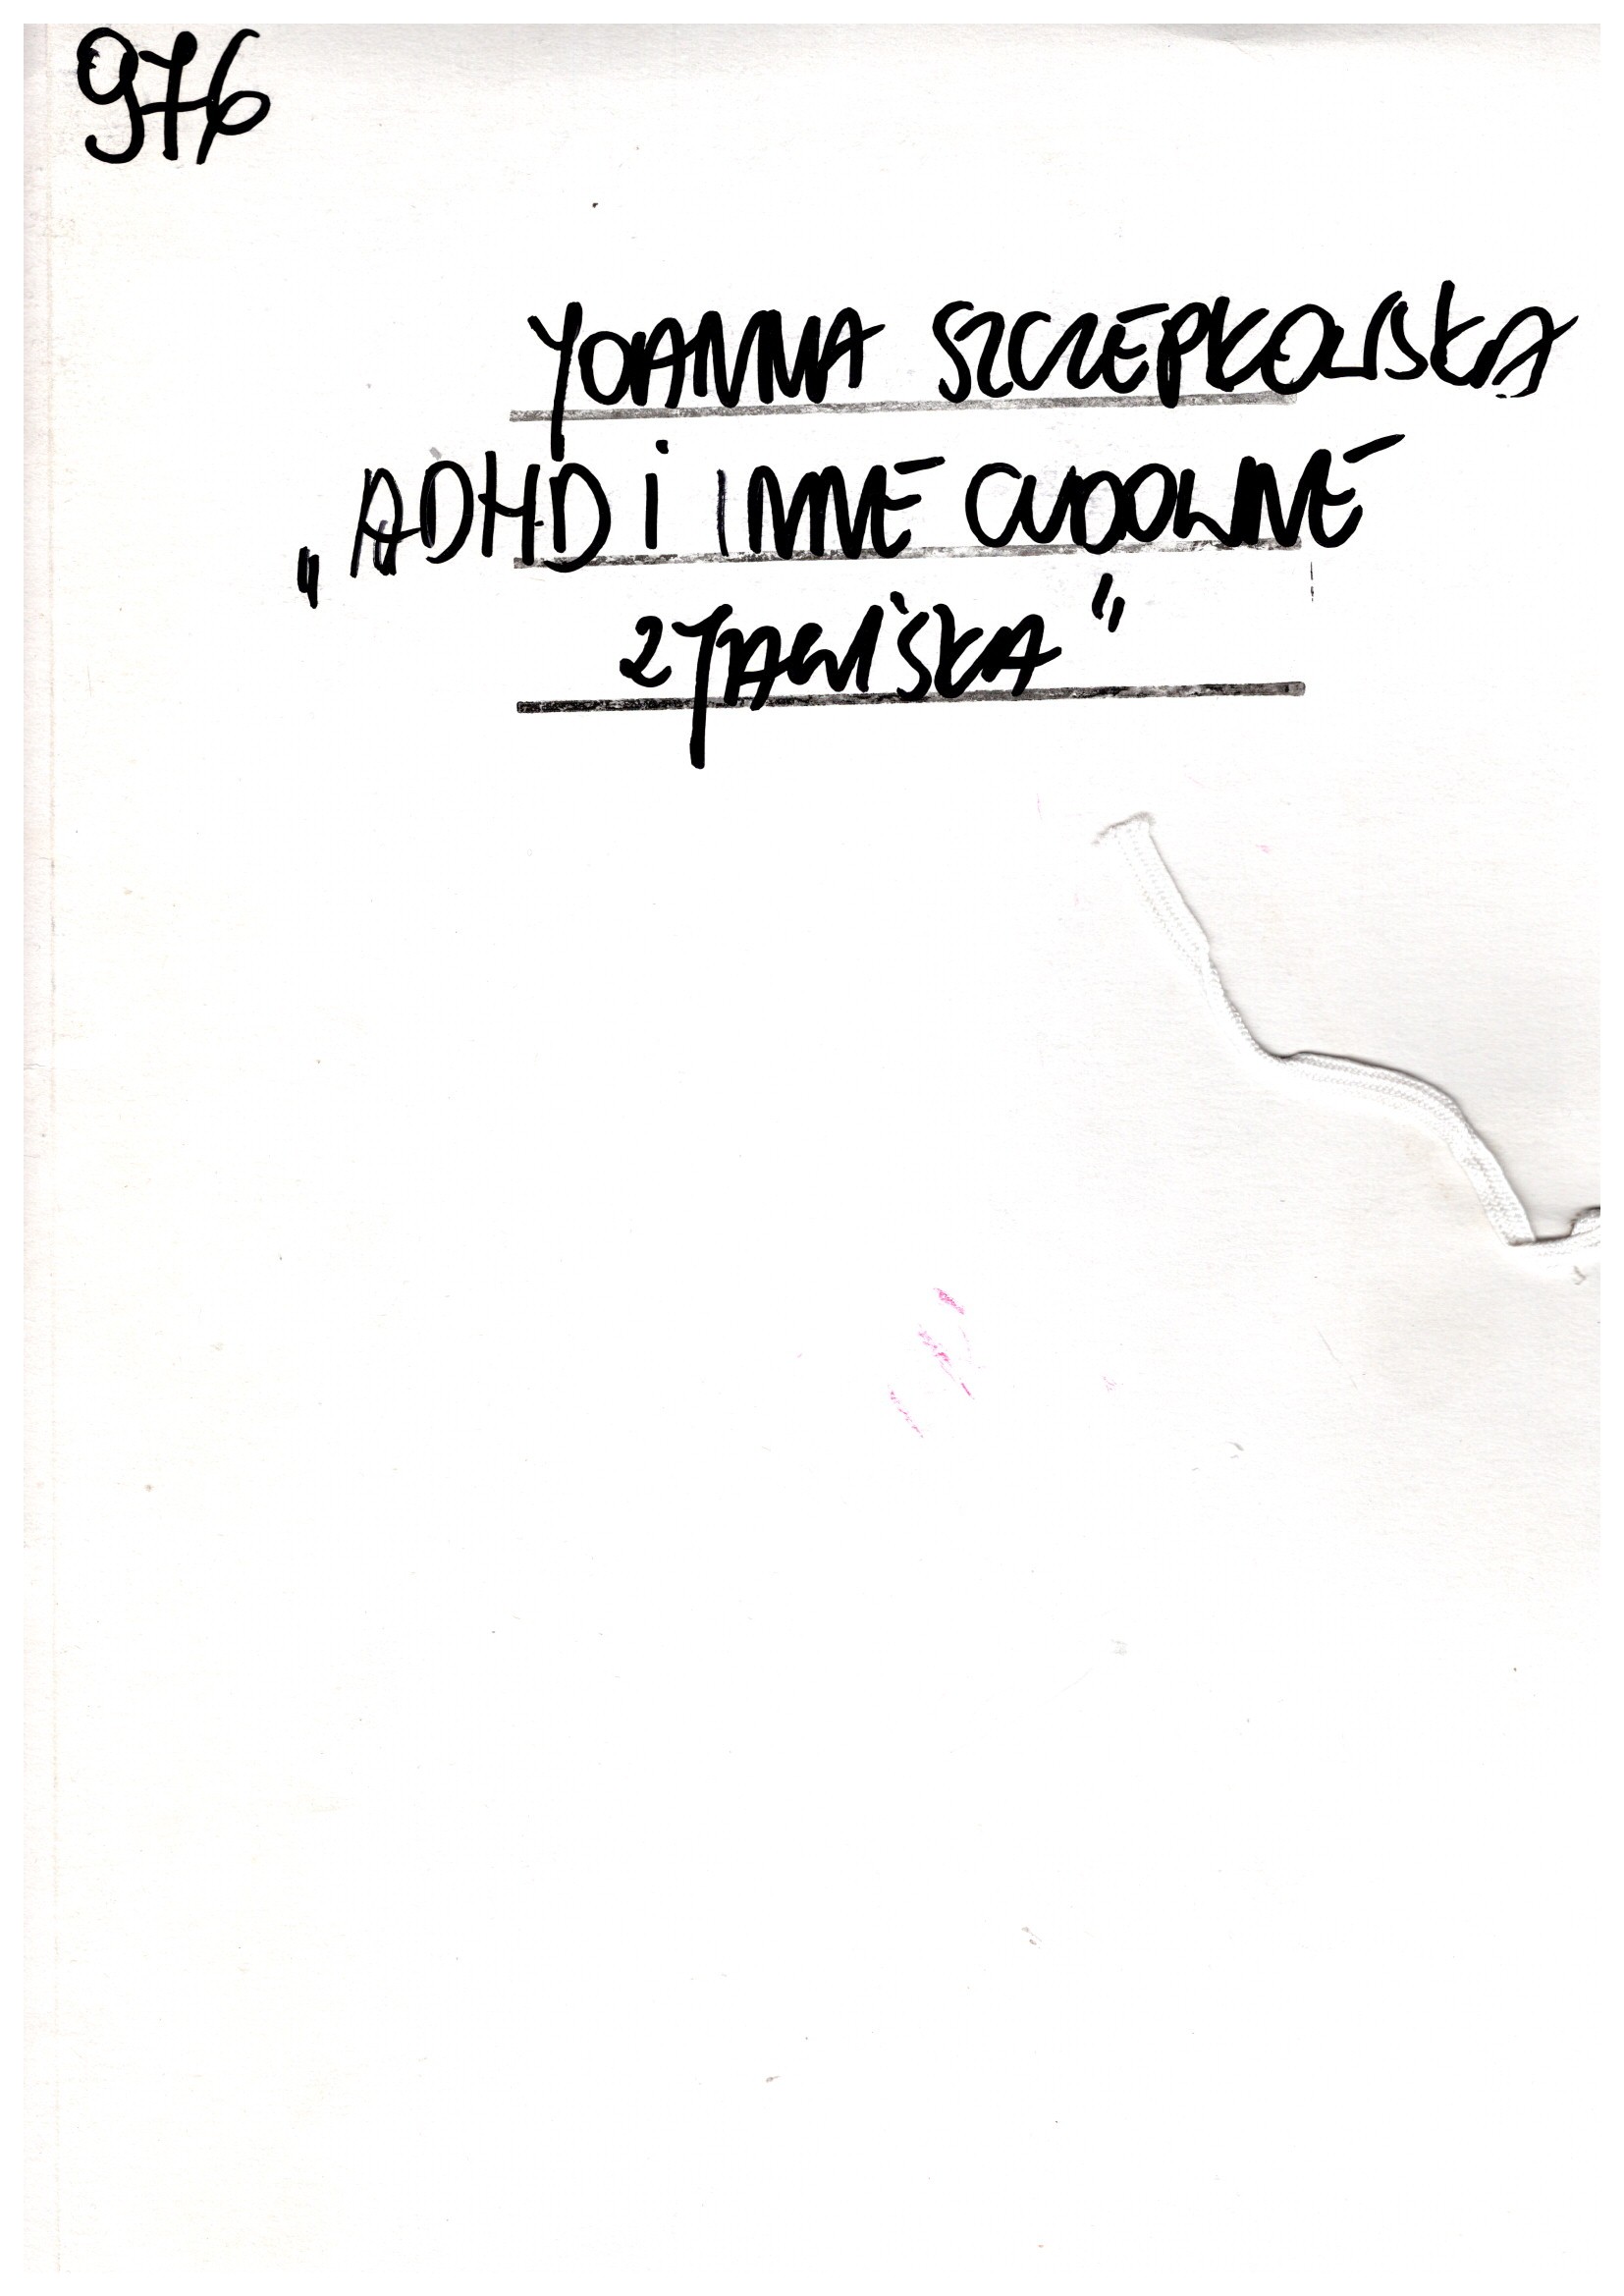 976
JOANNA SZCZEPKOWSKA
„ADHD i INNE CUDOWNE
ZJAWISKA"